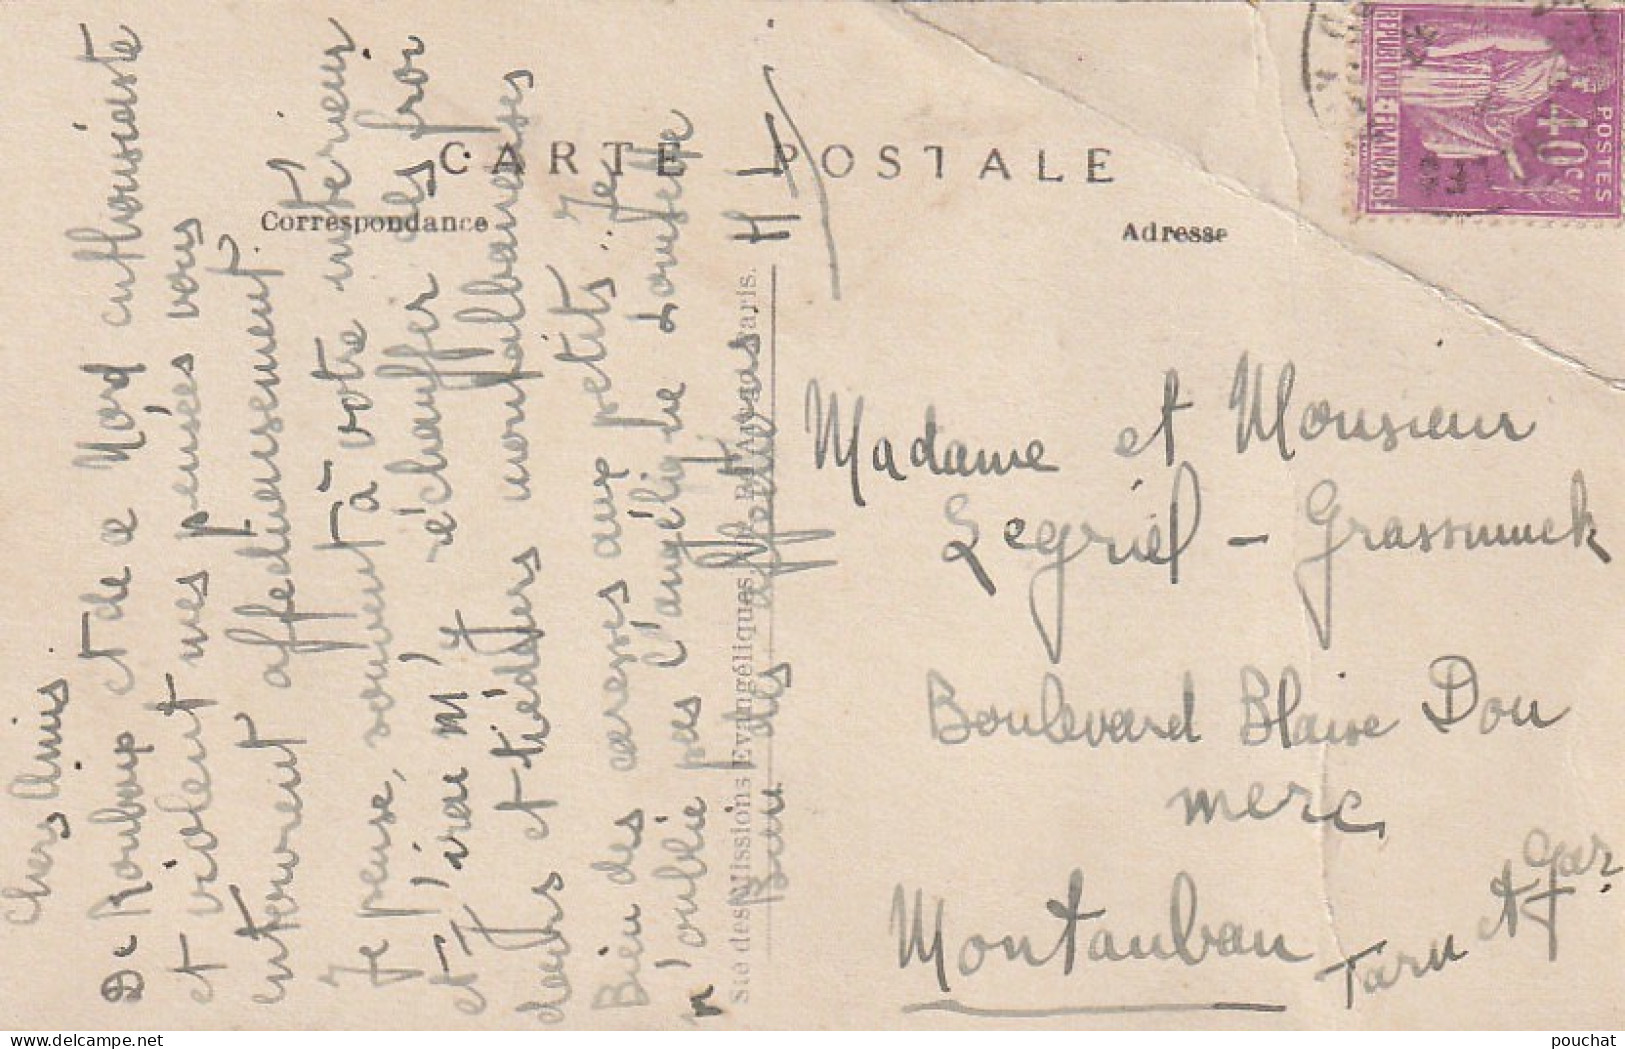 CARTE POSTALE
Correspondance
Adresse
REPUBLIQUE · FRANÇAISE
POSTES
40c
Chers Amis
De Roubaix et de ce Nord enthousiaste
et violent mes pensées vous
entourent affectueusement.
Je pense, souvent à votre intérieur
et j'irai m'y réchauffer des froi
deurs et tiédeurs montalbanaises
Bien des caresses aux petits. Je
n'oublie pas l'angélique Lousette
Bien des
Sté des Missions Evangéliques, Bd Arago, Paris.
Madame et Monsieur
Legriel - Grassmuck
Boulevard Blaise Dou
merc
Montauban
Tarn et Gar.
pouchat
www.delcampe.net